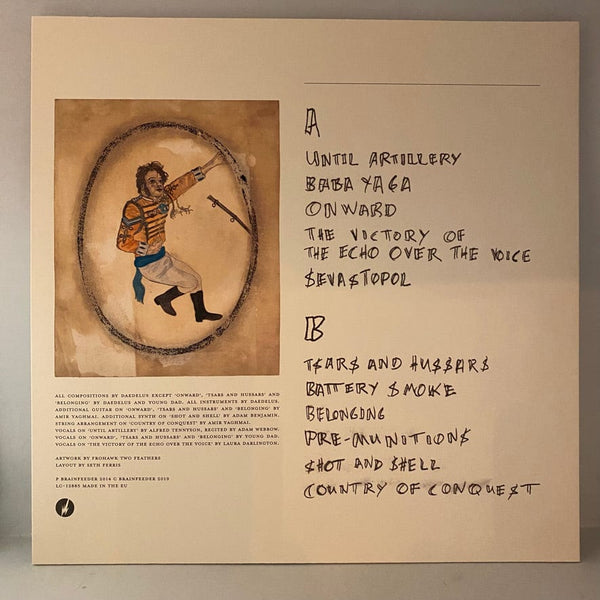 A
UNTIL ARTILLERY
BABA YAGA
ONWARD
THE VICTORY OF
THE ECHO OVER THE VOICE
$EVA$TOPOL
B
T$AR$ AND HU$$AR$
BATTERY $MOKE
BELONGING
PRE-MUNITION$
$HOT AND $HELL
COUNTRY OF CONQUE$T
ALL COMPOSITIONS BY DAEDELUS EXCEPT 'ONWARD', 'TSARS AND HUSSARS' AND
'BELONGING' BY DAEDELUS AND YOUNG DAD. ALL INSTRUMENTS BY DAEDELUS.
ADDITIONAL GUITAR ON 'ONWARD', 'TSARS AND HUSSARS' AND 'BELONGING' BY
AMIR YAGHMAI. ADDITIONAL SYNTH ON 'SHOT AND SHELL' BY ADAM BENJAMIN.
STRING ARRANGEMENT ON 'COUNTRY OF CONQUEST' BY AMIR YAGHMAI.
VOCALS ON 'UNTIL ARTILLERY' BY ALFRED TENNYSON, RECITED BY ADAM WEBROW.
VOCALS ON 'ONWARD', 'TSARS AND HUSSARS' AND 'BELONGING' BY YOUNG DAD.
VOCALS ON 'THE VICTORY OF THE ECHO OVER THE VOICE' BY LAURA DARLINGTON.
ARTWORK BY FROHAWK TWO FEATHERS
LAYOUT BY SETH FERRIS
P BRAINFEEDER 2014 © BRAINFEEDER 2019
LC-12885 MADE IN THE EU